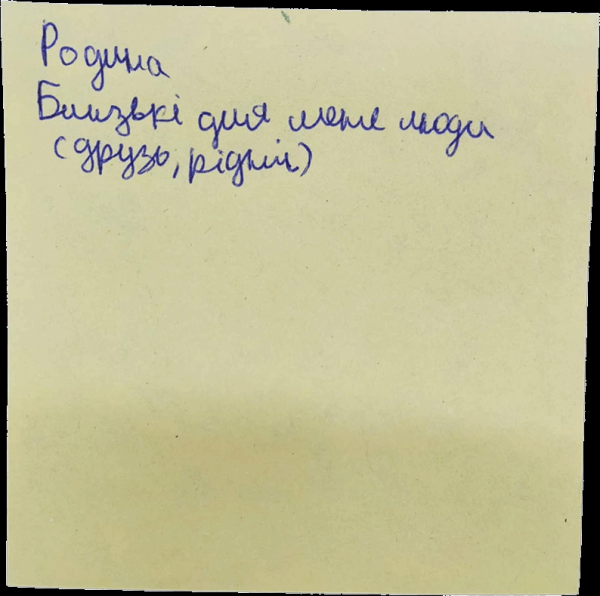 Родина
Близькі для мене люди
(друзі, рідні)